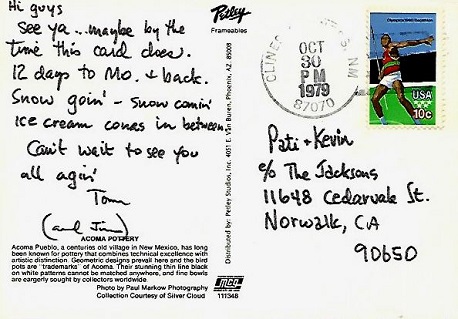 Hi guys
See ya ... maybe by the
time this card does.
12 days to Mo. + back.
Snow goin' - snow comin'
ice cream cones in between.
Can't wait to see you
all agin'
Tom
(and Jim)
ACOMA POTTERY
Acoma Pueblo, a centuries old village in New Mexico, has long
been known for pottery that combines technical excellence with
artistic distinction. Geometric designs prevail here and the bird
pots are "trademarks" of Acoma. Their stunning thin line black
on white patterns cannot be matched anywhere, and fine bowls
are eargerly sought by collectors worldwide.
Photo by Paul Markow Photography
Collection Courtesy of Silver Cloud
Petley
Frameables
Distributed by: Petley Studios, Inc. 4051 E. Van Buren, Phoenix, AZ 85008
mcg
111348
CLINES NM
OCT
30
PM
1979
87070
Olympics 1980 Decathlon
USA
10c
Pati + Kevin
c/o The Jacksons
11648 Cedarvale St.
Norwalk, CA
90650